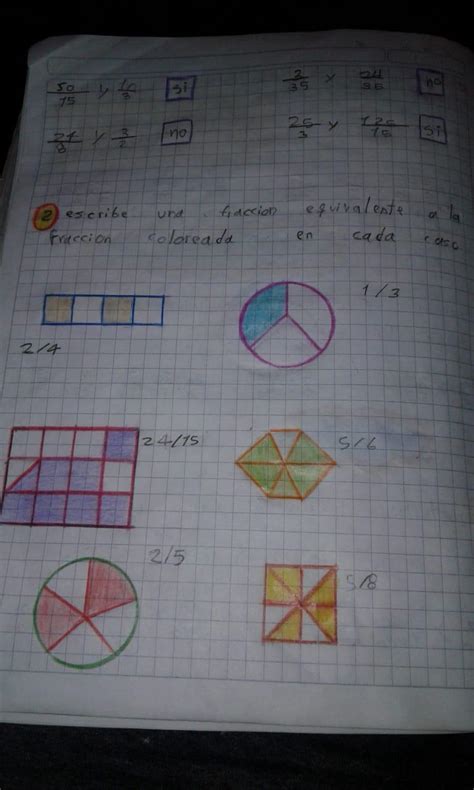 50/15 y 10/3 si
2/35 y no
24/8 y 3/2 no
25/3 y 125/15 si
2 escribe una fraccion equivalente a la
fraccion coloreada en cada caso
1/3
2/4
24/15
5/6
2/5
5/8